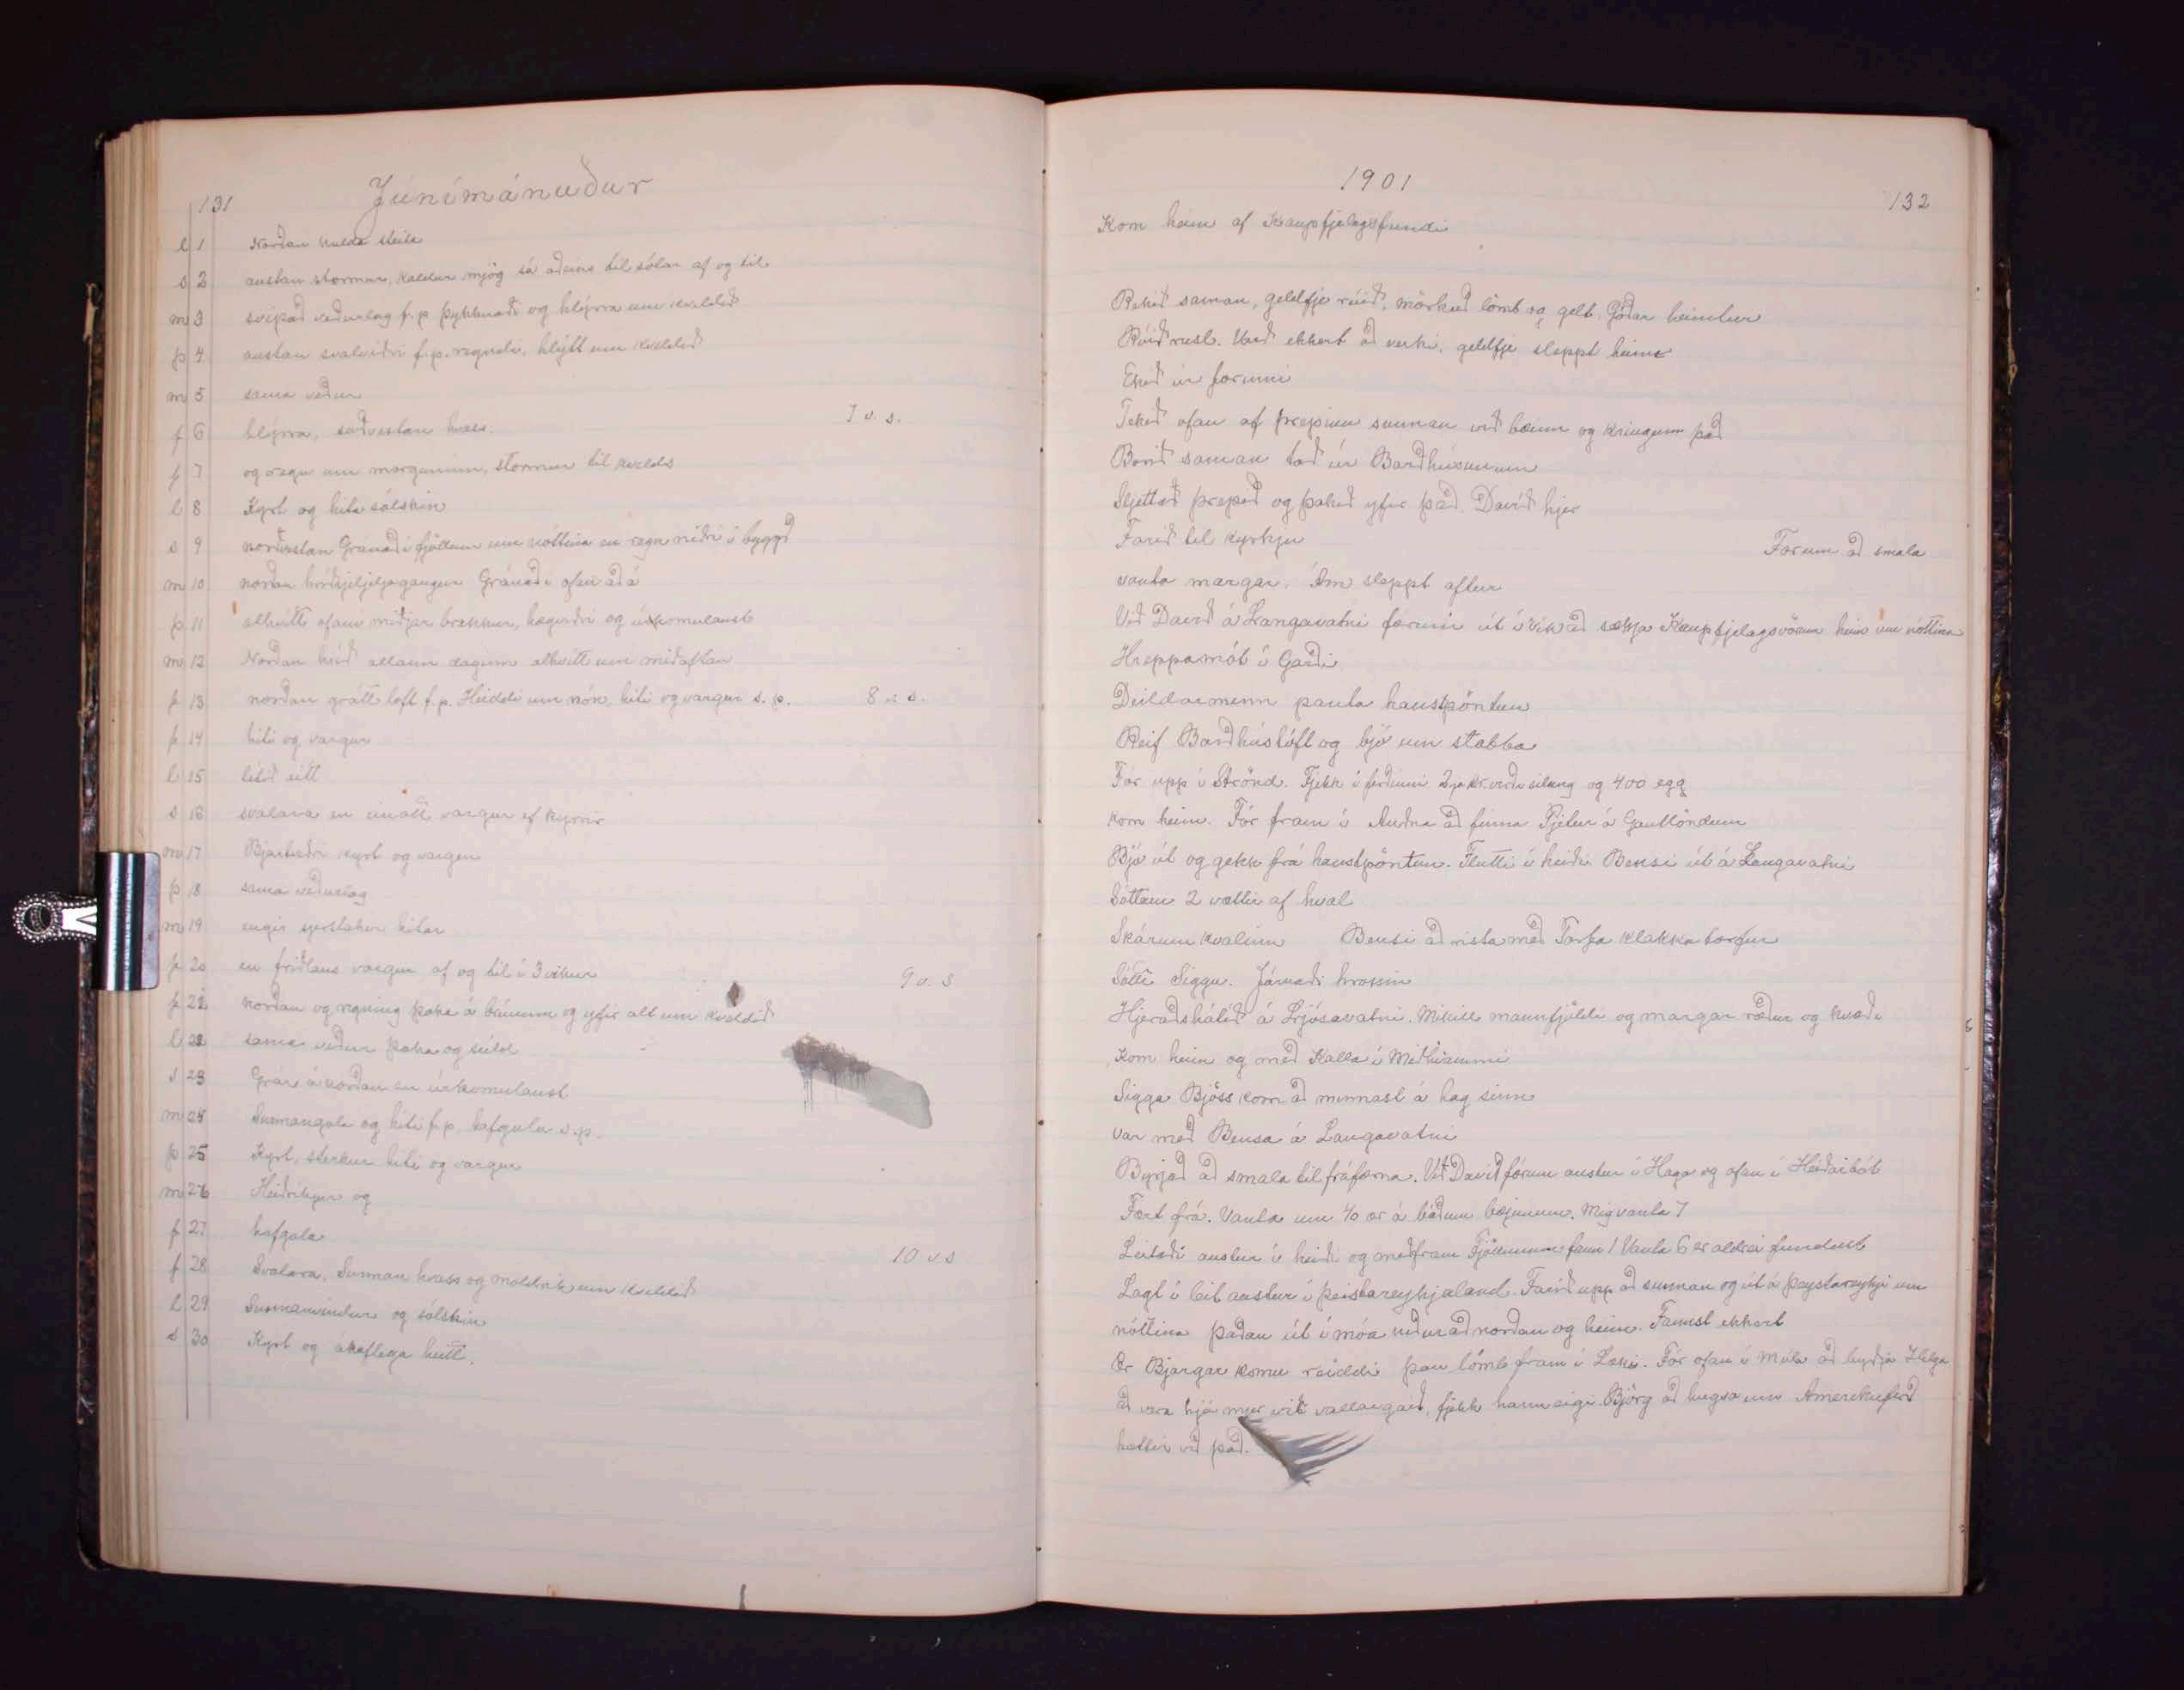 131
Júnímánuður
l 1 Norðan kulda steita
s 2 austan stormur, kaldur mjög sá aðeins til sólar af og til
m 3 svipað veðurlag f.p. þykknaði og hlýrra um kveldið
þ 4 austan svalviðri f.p. regnúði, hlýtt um kveldið
m 5 sama veður
f 6 hlýrra, suðvestan hvass. 7 v. s.
f 7 og regn um morguninn, stormur til kvelds
l 8 Kyrt og hita sólskin
s 9 norðvestan Gránaði í fjöllum um nóttina en regn niðri í bygð
m 10 norðan Gránaði ofan að á
þ 11 alhvítt ofaní miðjar brekkur, hægviðri og úrkomulaust
m 12 Norðan hríð allann daginn alhvítt um miðaftan
f 13 norðan grátt loft f.p. Heiddi um nón, hiti og vargur s.p. 8 v. s.
f 14 hiti og vargur
l 15 litið eitt
s 16 svalara en vargur ef kyrrir
m 17 Bjartviðri kyrt og vargur
þ 18 sama veðurlag
m 19 engir sjerstakir hitar
f 20 en friðlaus vargur af og til í 3 vikur 9 v. s
f 21 norðan og rigning þoka á brúnum og yfir alt um kveldið
l 22 sama veður þoka og súld
s 23 Grár á norðan en úrkomulaust
m 24 Sunnangola og hiti f.p. hafgola s.p.
þ 25 Kyrt, sterkur hiti og vargur
m 26 Heiðríkjur og
f 27 hafgola
f 28 Svalara, Sunnan hvass og moldrok um kveldið 10 v s
l 29 Sunnanvindur og sólskin
s 30 Kyrt og ákaflega heitt.
1901
132
Kom heim af Kaupfjelagsfundi
Rekið saman, geldfje rúið, mörkuð lömb og gelt, Góðar heimtur
Rúið rusl. Varð ekkert að verki, geldfje sleppt heima
Ekið úr forinni
Tekið ofan af þrepinu sunnan við bæinn og kringum það
Borið saman tað úr Barðhúsunum
Sljettað þrepið og þakið yfir það. Davíð hjer
Farið til kyrkju Forum að smala
vanta margar. Ám sleppt aftur
Við Davíð á Langavatni forum út í Vík að sækja Kaupfjelagsvörur heim um nóttina
Hreppamót í Garði
Deildarmenn panta haustpöntun
Reif Barðhústóft og bjó um stabba
Fór upp í Strönd. Fjekk í ferðinni kr. virði silung og 400 egg
kom heim. Fór fram í Auðna að finna Pjetur á Gautlöndum
Bjó út og gekk frá haustpöntun. Flutti í heiði Bensi út á Langavatni
Sóttum 2 vættir af hval
Skárum hvalinn Bensi að rista með Torfa klakka torfur
Sótti Siggu. Járnaði hrossin
Hjeraðshátíð á Ljósavatni. Mikill mannfjöldi og margar ræður og kvæði
Kom heim og með Kalla í Miðhvammi
Sigga Bjöss kom að minnast á hag sinn
var með Bensa á Langavatni
Byrjað að smala til fráfærna. Við Davíð fórum austur í Haga og ofan í Heiðarbót
Fært frá. Vanta um 40 ær á báðum bæjunum. Mig vanta 7
Leitaði austur í heiði og meðfram Fjöllunum fann 1 Vanta 6 er aldrei fundust
Lagt í leit austur í Þeistareykjaland. Farið upp að sunnan og út á Þeystareyki um
nóttina þaðan út í móa niður að norðan og heim. Fannst ekkert
Ær Bjargar komu reiddi þau lömb fram í Fór ofan í Múla að byðja Helga
að vera hjá mjer við vallargarð, fjekk hann eigi. Björg að hugsa um Ameríkuferð
hættir við það.